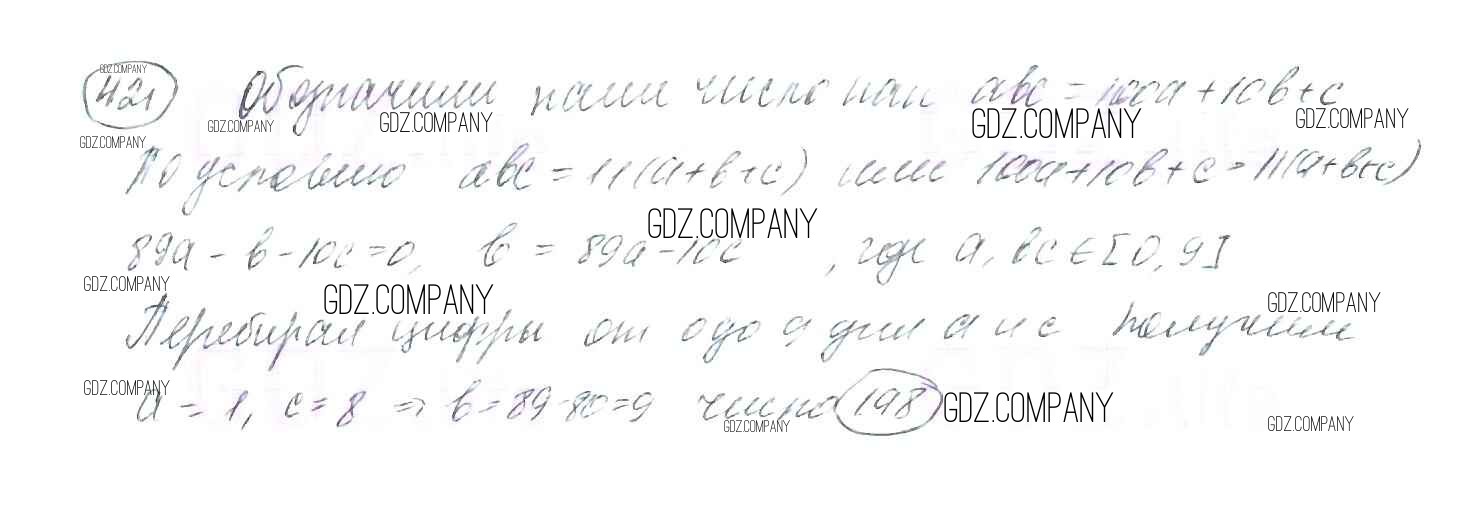 GDZ.COMPANY
421 Обозначим наше число как abc = 100a + 10b + c
GDZ.COMPANY GDZ.COMPANY GDZ.COMPANY GDZ.COMPANY GDZ.COMPANY
По условию abc = 11(a+b+c) или 100a+10b+c = 11(a+b+c)
GDZ.COMPANY
89a - b - 10c = 0, b = 89a - 10c, где a, b c ∈ [0, 9]
GDZ.COMPANY GDZ.COMPANY GDZ.COMPANY
Перебирая цифры от 0 до 9 для a и c получим
GDZ.COMPANY
a = 1, c = 8 ⇒ b = 89-80=9 число 198 GDZ.COMPANY
GDZ.COMPANY GDZ.COMPANY